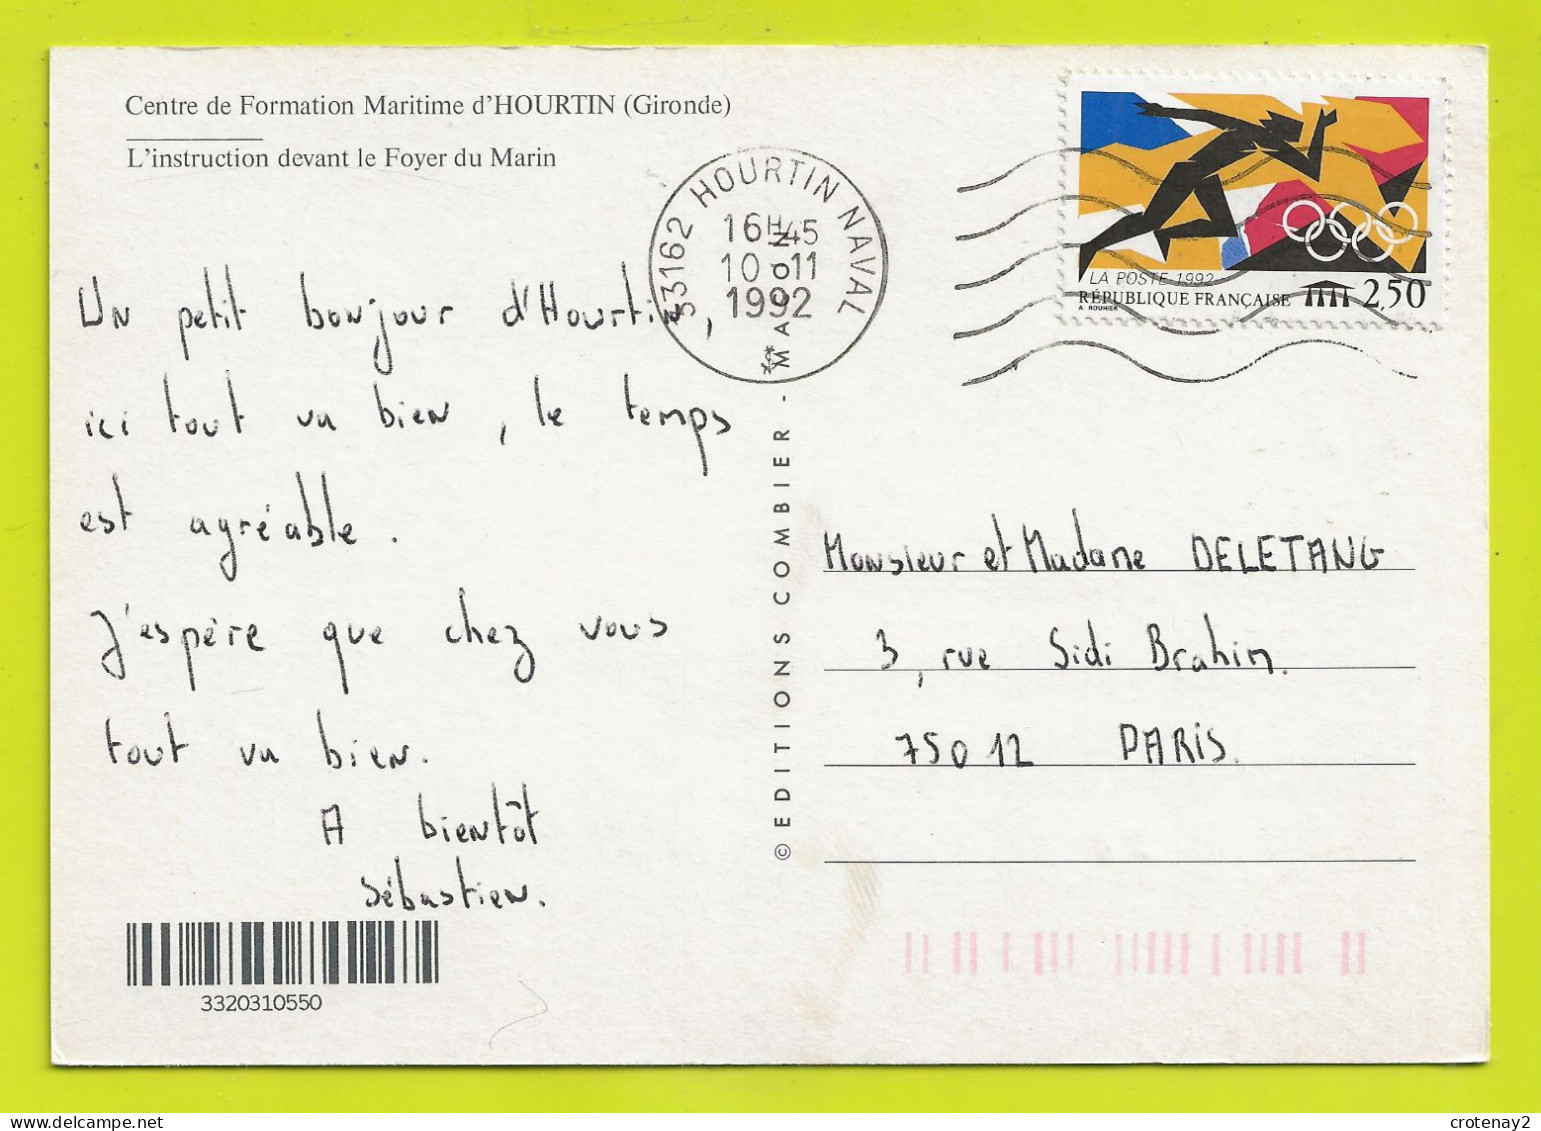 Centre de Formation Maritime d'HOURTIN (Gironde)
L'instruction devant le Foyer du Marin
Un petit bonjour d'Hourtin,
ici tout va bien, le temps
est agréable.
J'espère que chez vous
tout va bien.
A bientôt
Sébastien.
3320310550
© EDITIONS COMBIER - MACON
33162 HOURTIN NAVAL
16H45
10-11
1992
LA POSTE 1992
RÉPUBLIQUE FRANÇAISE 2,50
A. ROUHIER
Monsieur et Madame DELETANG
3, rue Sidi Brahim.
75012 PARIS.
crotenay2